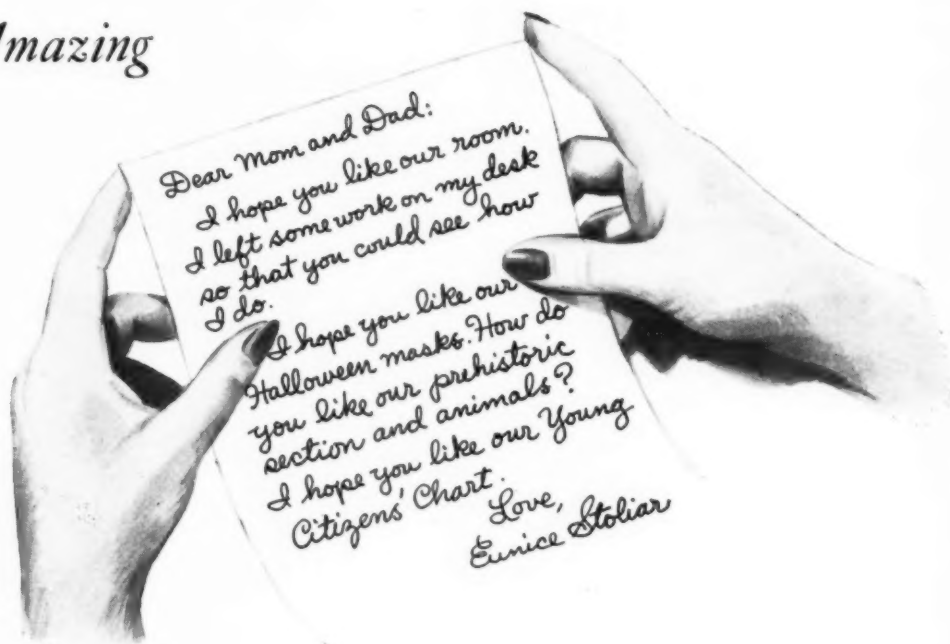 Amazing
Dear Mom and Dad:
I hope you like our room.
I left some work on my desk
so that you could see how
I do.
I hope you like our
Halloween masks. How do
you like our prehistoric
section and animals?
I hope you like our Young
Citizens' Chart.
Love,
Eunice Stoliar